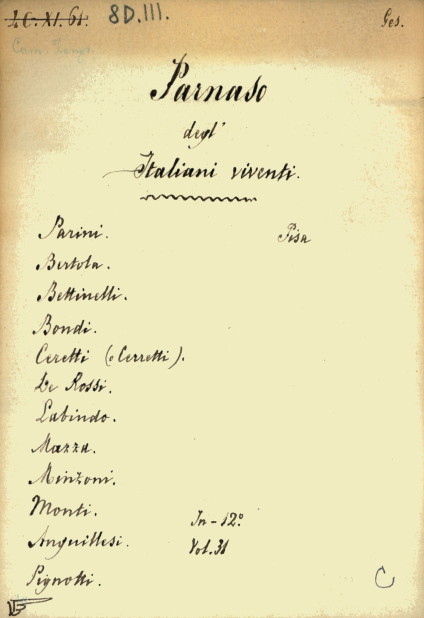 2C.XI.61.
8D.III.
Ges.
Parnaso
degl'
Italiani viventi.
Parini. Pisa
Bertola.
Bettinelli.
Bondi.
Ceretti (o Cerretti).
De Rossi.
Labindo.
Mazza.
Minzoni.
Monti.
In-12º
Anguillesi. Vol. 31
Pignotti.
C